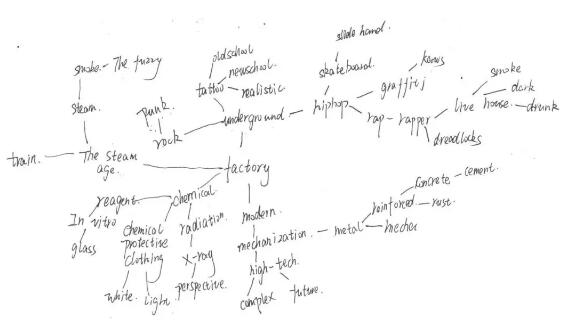 slide hand.
oldschool
smoke. - The fuzzy
newschool.
skateboard.
kaws
tattoo
realistic
graffiti
smoke
steam.
punk.
underground
hiphop
live house.
dark
drunk
rock
rap - rapper
dreadlocks
train.
The steam
age.
factory
reagent
chemical
concrete - cement.
In vitro
chemical
protective
clothing
radiation.
modern.
reinforced
rust.
glass
mechanization.
metal
x-ray
high-tech.
white.
light
perspective.
complex
future.